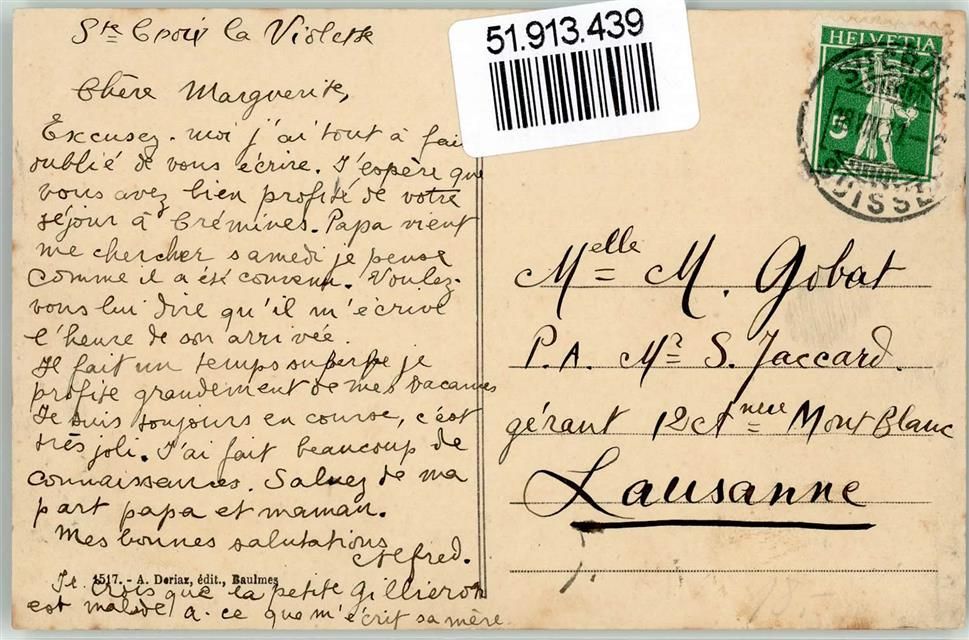 Ste Croix la Violette
51.913.439
HELVETIA
5
SUISSE
Chère Marguerite,
Excusez-moi j'ai tout à fait
oublié de vous écrire. J'espère que
vous avez bien profité de votre
séjour à Crémines. Papa vient
me chercher samedi je pense
comme il a été convenu. Voulez-
vous lui dire qu'il m'écrive
l'heure de son arrivée.
Il fait un temps superbe je
profite grandement de mes vacances
Je suis toujours en course, c'est
très joli. J'ai fait beaucoup de
connaissances. Saluez de ma
part papa et maman.
Mes bonnes salutations
Alfred.
1517. - A. Deriaz, édit., Baulmes
Je crois que la petite Gilliéron
est malade, à ce que m'écrit sa mère
Melle M. Gobat
P.A. Mr S. Jaccard.
gérant 12 Mont Blanc
Lausanne